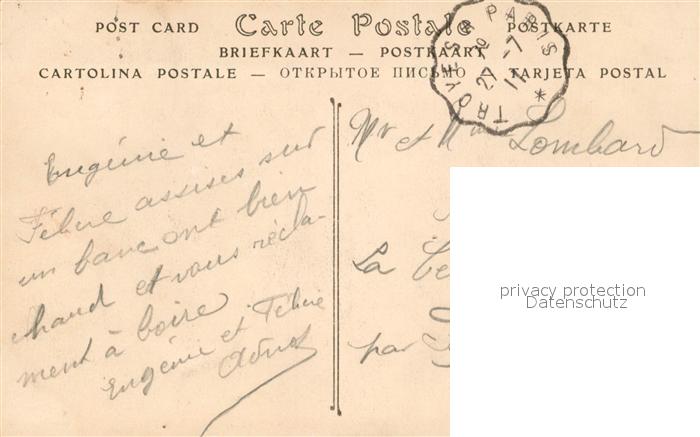 POST CARD Carte Postale POSTKARTE
BRIEFKAART — POSTKAART
CARTOLINA POSTALE — ОТКРЫТОЕ ПИСЬМО — TARJETA POSTAL
TROYES PARIS
27 -7
11
Mr et Mme Lombard
Eugénie et
Féline assises sur
un banc ont bien
chaud et vous récla-
ment à boire.
Eugénie et Féline
La
par
privacy protection
Datenschutz